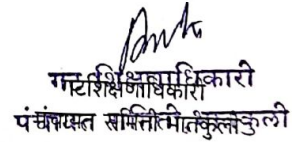 गटशिक्षणाधिकारी
पंचायत समिती भातकुली